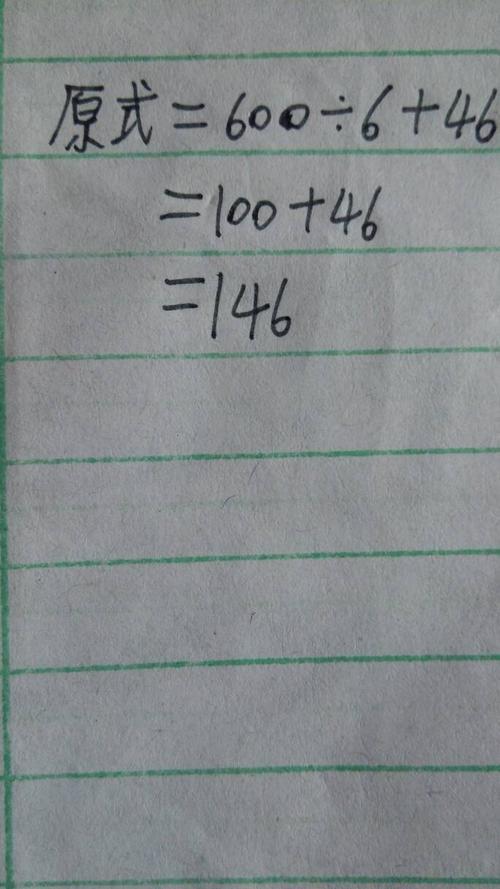 原式=600÷6+46
=100+46
=146